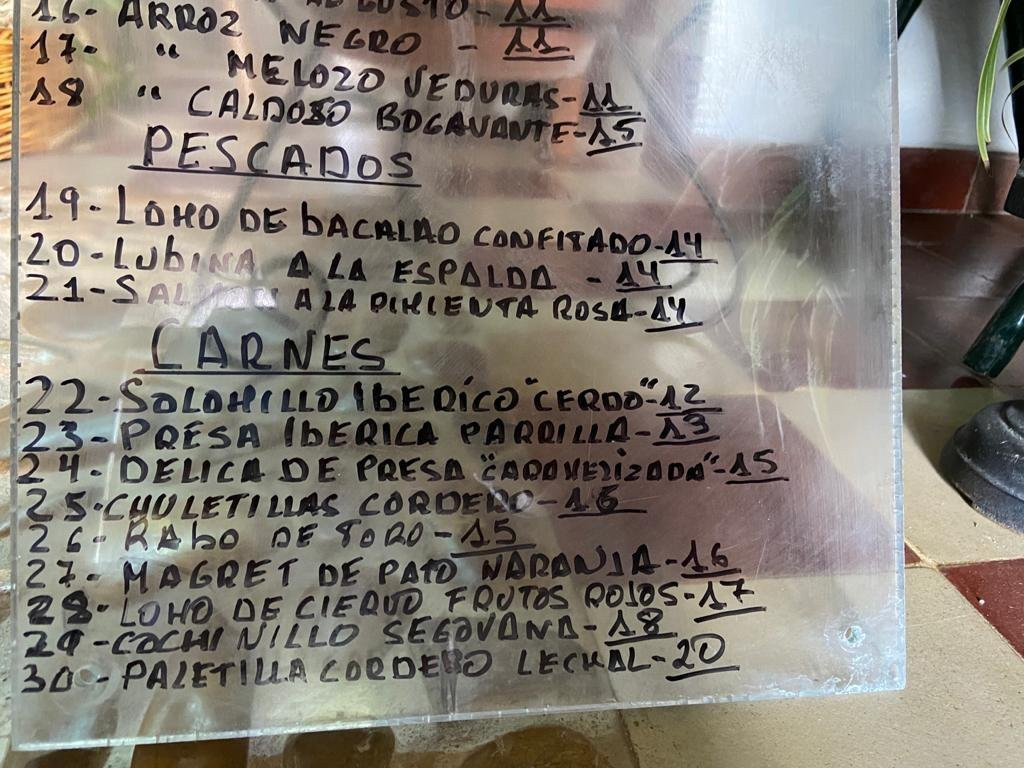 16- ARROZ NEGRO - 11
17- " MELOZO VEDURAS-11
18 " CALDOSO BOGAVANTE-15
PESCADOS
19- LOMO DE bACALAO CONFITADO-14
20-LUbINA A LA ESPALDA -14
21-SALMON A LA PIMIENTA ROSA-14
CARNES
22-SOLOMILLO IbERICO "CERDO"-12
23- PRESA IbERICA PARRILLA-13
24- DELICA DE PRESA "CARAMELIZADA"-15
25-CHULETILLAS CORDERO-16
26- RAbO DE TORO-15
27- MAGRET DE PATO NARANJA-16
28- LOMO DE CIERVO FRUTOS ROJOS-17
29-COCHINILLO SEGOVANA-18
30-PALETILLA CORDERO LECHAL-20